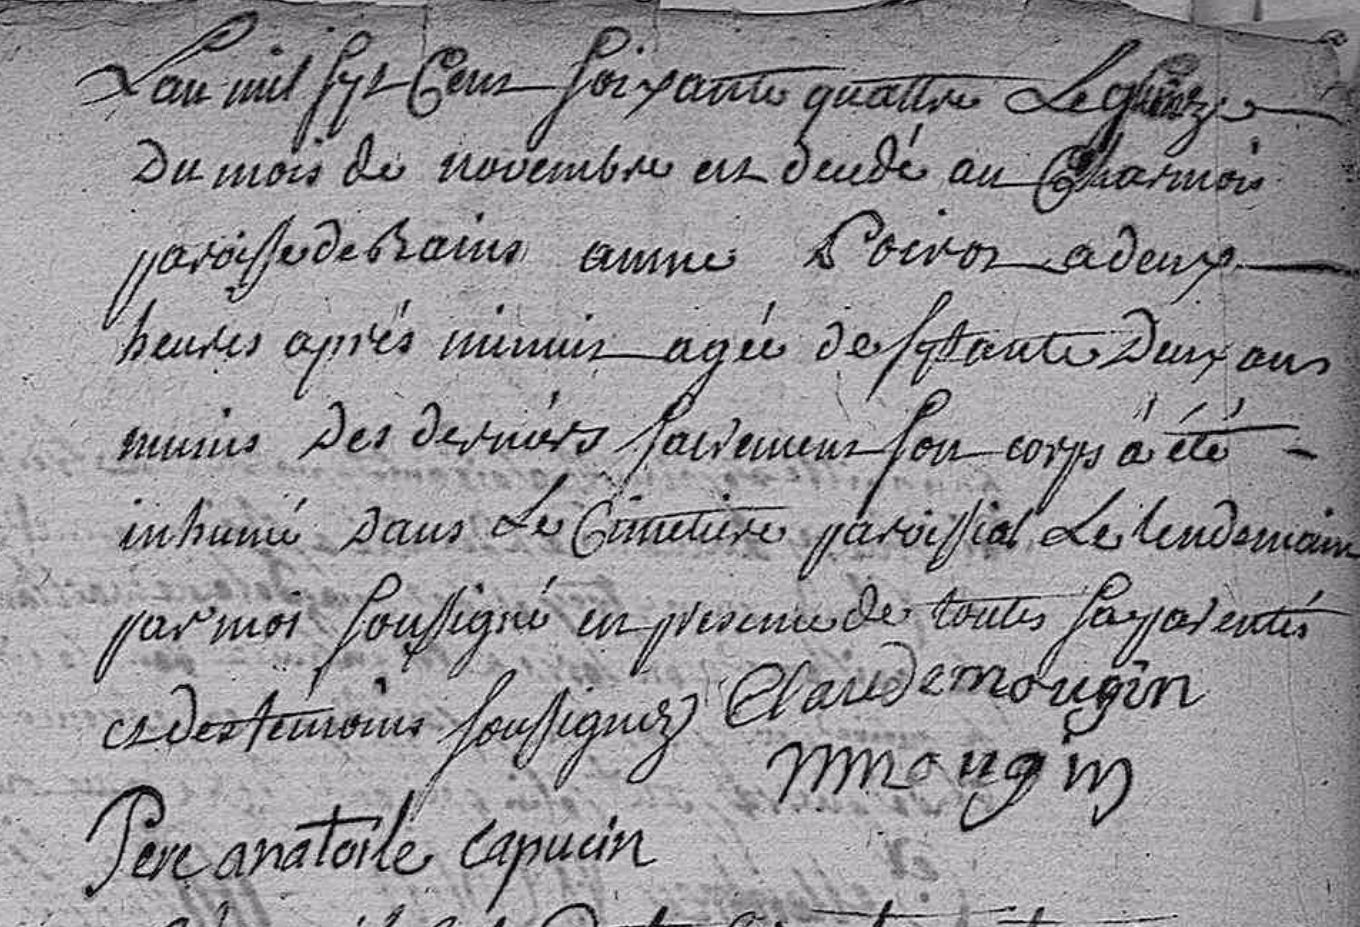 Lan mil sept Cent soixante quattre Le quinze
Du mois de novembre est decedé au Charmois
paroisse de Bains anne Poirot a deux
heures aprés minuit agée de septante Deux ans
munis Des derniérs sacrement son corps á été
inhumé dans Le Cimetiere paroissial Le lendemain
par moi soussigné en presence de toutes sa parentés
et des temoins soussignez Claude mougin
mmougin
Pere anatoile capucin